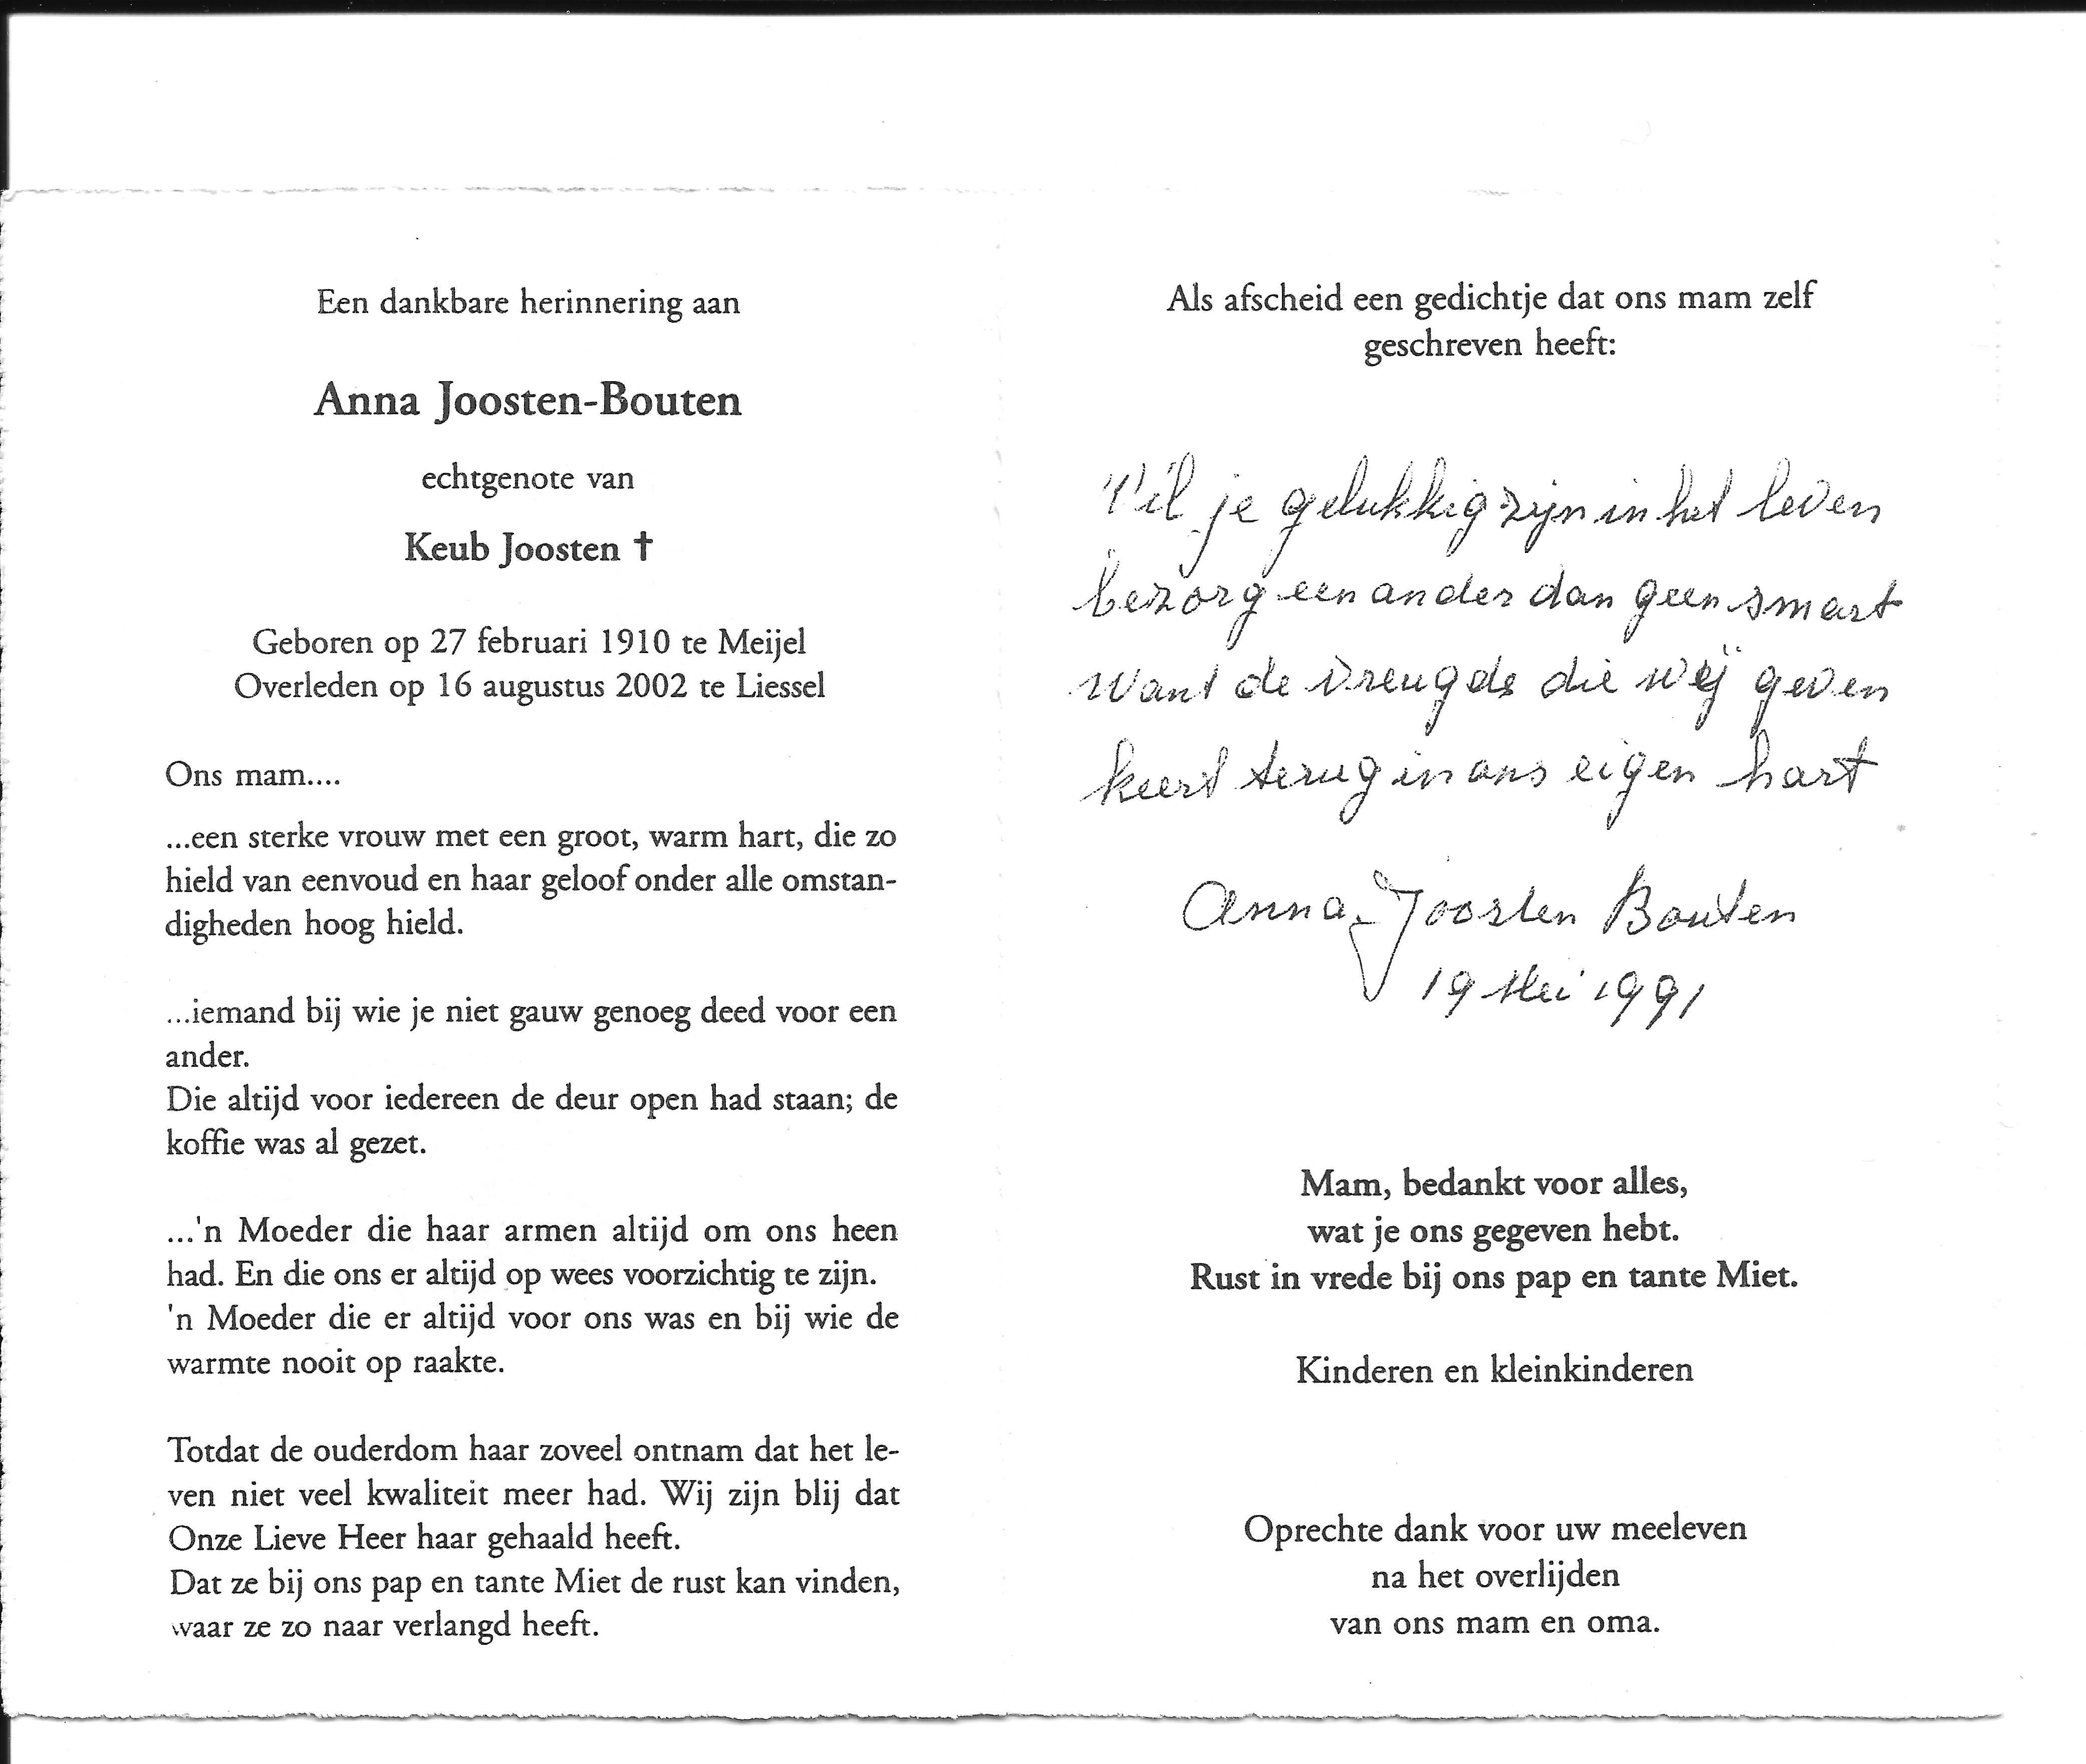 Een dankbare herinnering aan
Anna Joosten-Bouten
echtgenote van
Keub Joosten †
Geboren op 27 februari 1910 te Meijel
Overleden op 16 augustus 2002 te Liessel
Ons mam....
...een sterke vrouw met een groot, warm hart, die zo
hield van eenvoud en haar geloof onder alle omstan-
digheden hoog hield.
...iemand bij wie je niet gauw genoeg deed voor een
ander.
Die altijd voor iedereen de deur open had staan; de
koffie was al gezet.
...'n Moeder die haar armen altijd om ons heen
had. En die ons er altijd op wees voorzichtig te zijn.
'n Moeder die er altijd voor ons was en bij wie de
warmte nooit op raakte.
Totdat de ouderdom haar zoveel ontnam dat het le-
ven niet veel kwaliteit meer had. Wij zijn blij dat
Onze Lieve Heer haar gehaald heeft.
Dat ze bij ons pap en tante Miet de rust kan vinden,
waar ze zo naar verlangd heeft.
Als afscheid een gedichtje dat ons mam zelf
geschreven heeft:
Wil je gelukkig zijn in het leven
bezorg een ander dan geen smart
Want de vreugde die wij geven
keert terug in ons eigen hart
Anna Joosten Bouten
19 Mei 1991
Mam, bedankt voor alles,
wat je ons gegeven hebt.
Rust in vrede bij ons pap en tante Miet.
Kinderen en kleinkinderen
Oprechte dank voor uw meeleven
na het overlijden
van ons mam en oma.